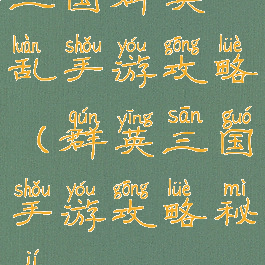 luàn shǒu yóu gōng lüè
乱手游攻略
qún yīng sān guó
（群英三国
shǒu yóu gōng lüè mì
手游攻略秘
jí